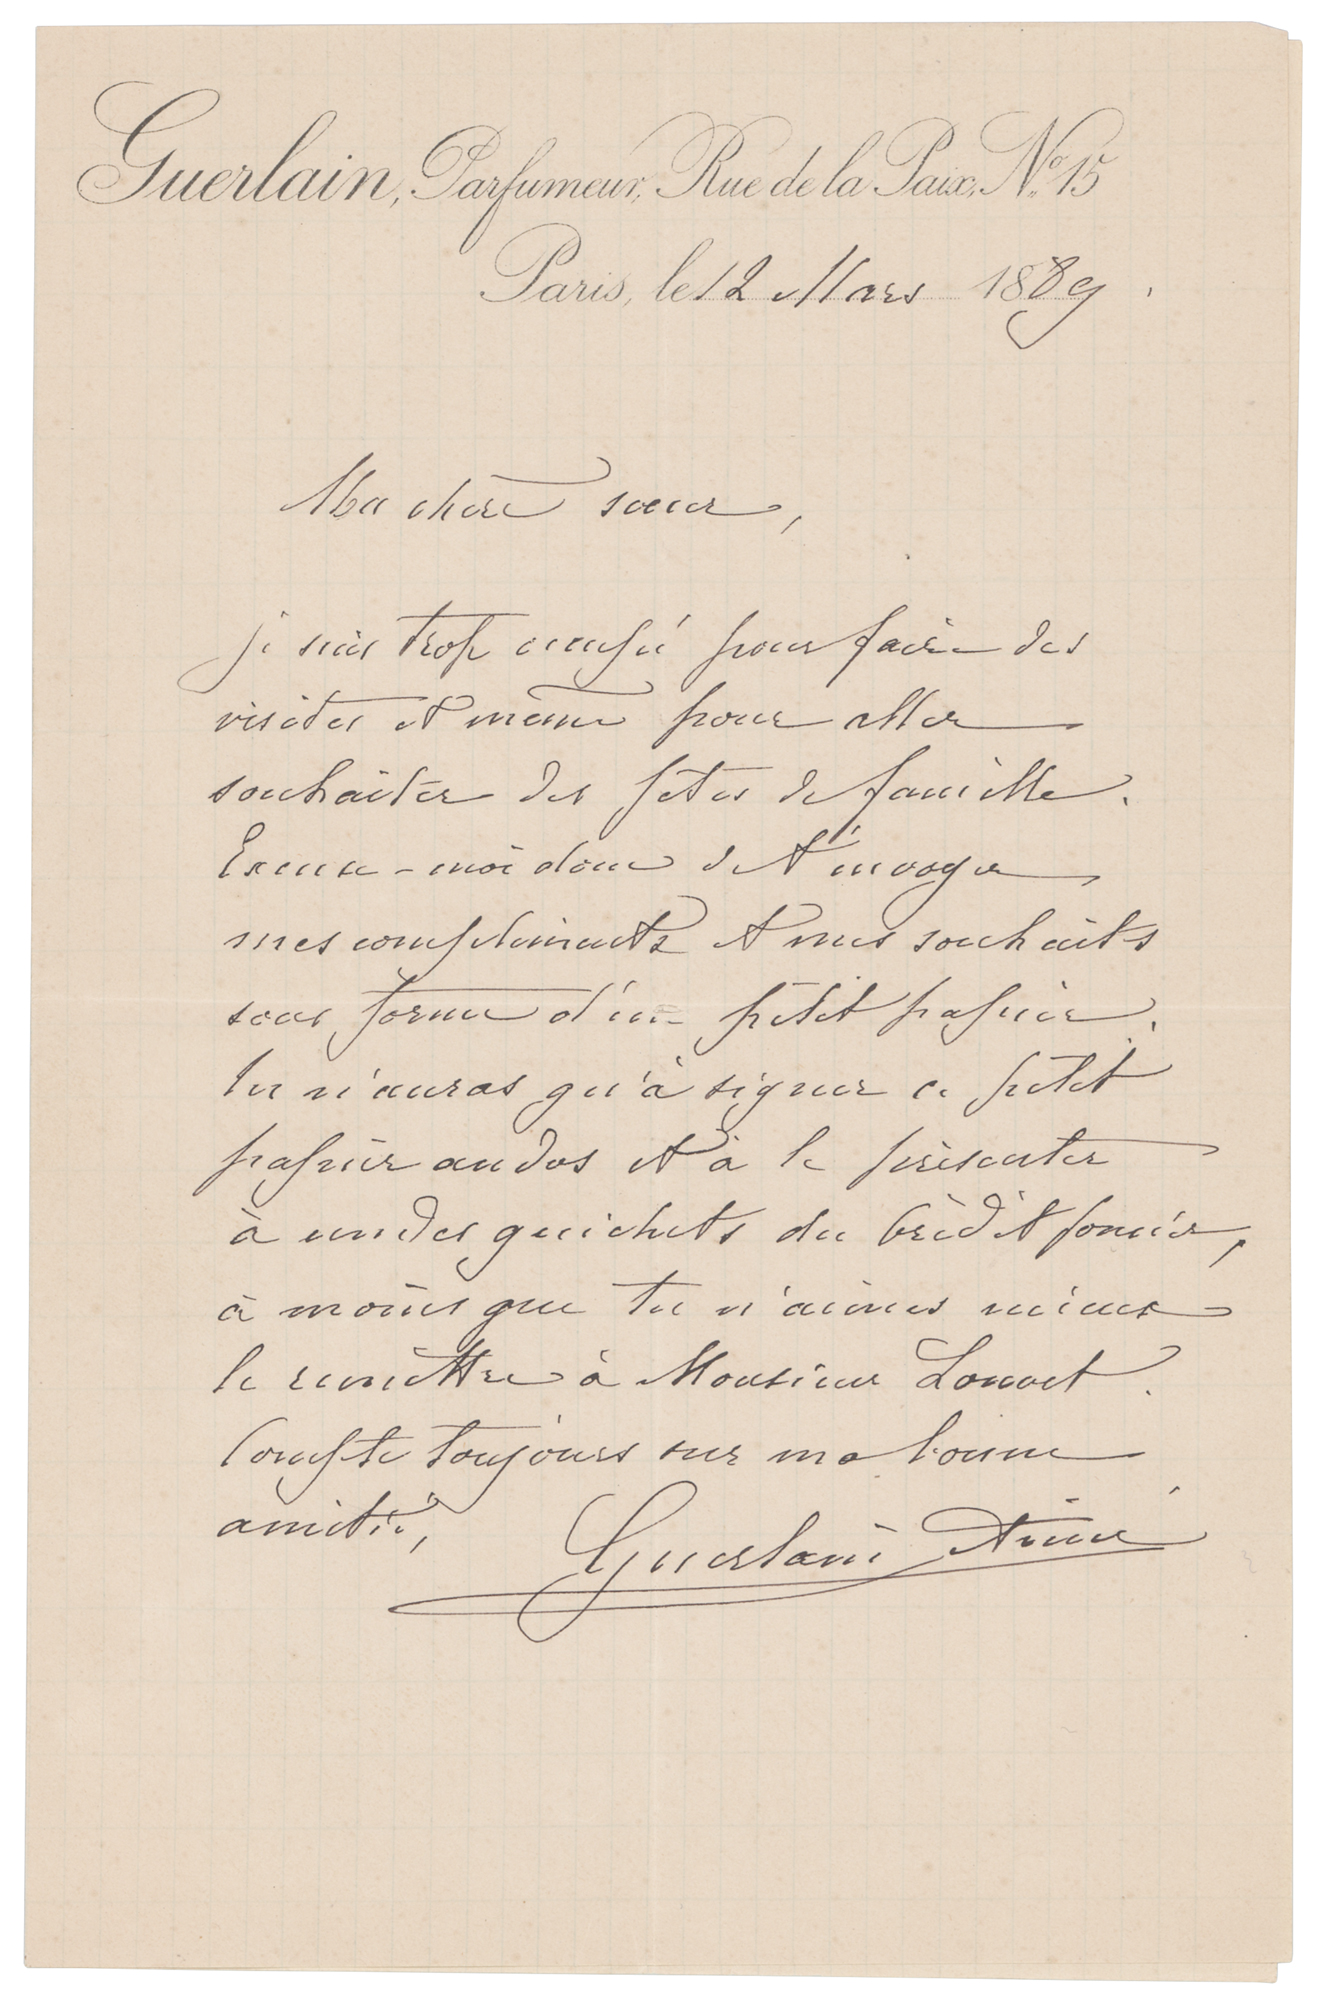 Guerlain, Parfumeur, Rue de la Paix, No 15
Paris, le 12 Mars 1889.
Ma chère sœur,
je suis trop occupé pour faire des
visites et même pour aller
souhaiter des fêtes de famille.
Excuse-moi donc de t'envoyer
mes compliments et mes souhaits
sous forme d'un petit papier.
tu n'auras qu'à signer ce petit
papier au dos et à le présenter
à un des guichets du Crédit foncier,
à moins que tu n'aimes mieux
le remettre à Monsieur Louvet.
Compte toujours sur ma bonne
amitié,
Guerlain Aimé